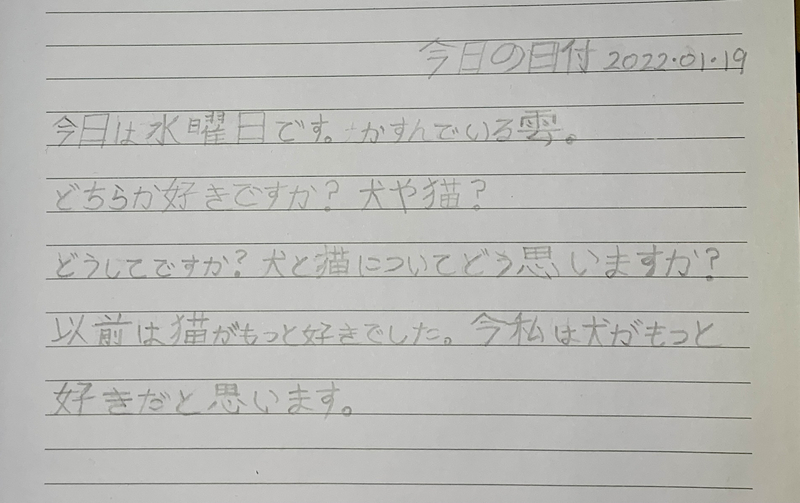 今日の日付 2022.01.19
今日は水曜日です。かすんでいる雲。
どちらか好きですか？犬や猫？
どうしてですか？犬と猫についてどう思いますか？
以前は猫がもっと好きでした。今私は犬がもっと
好きだと思います。